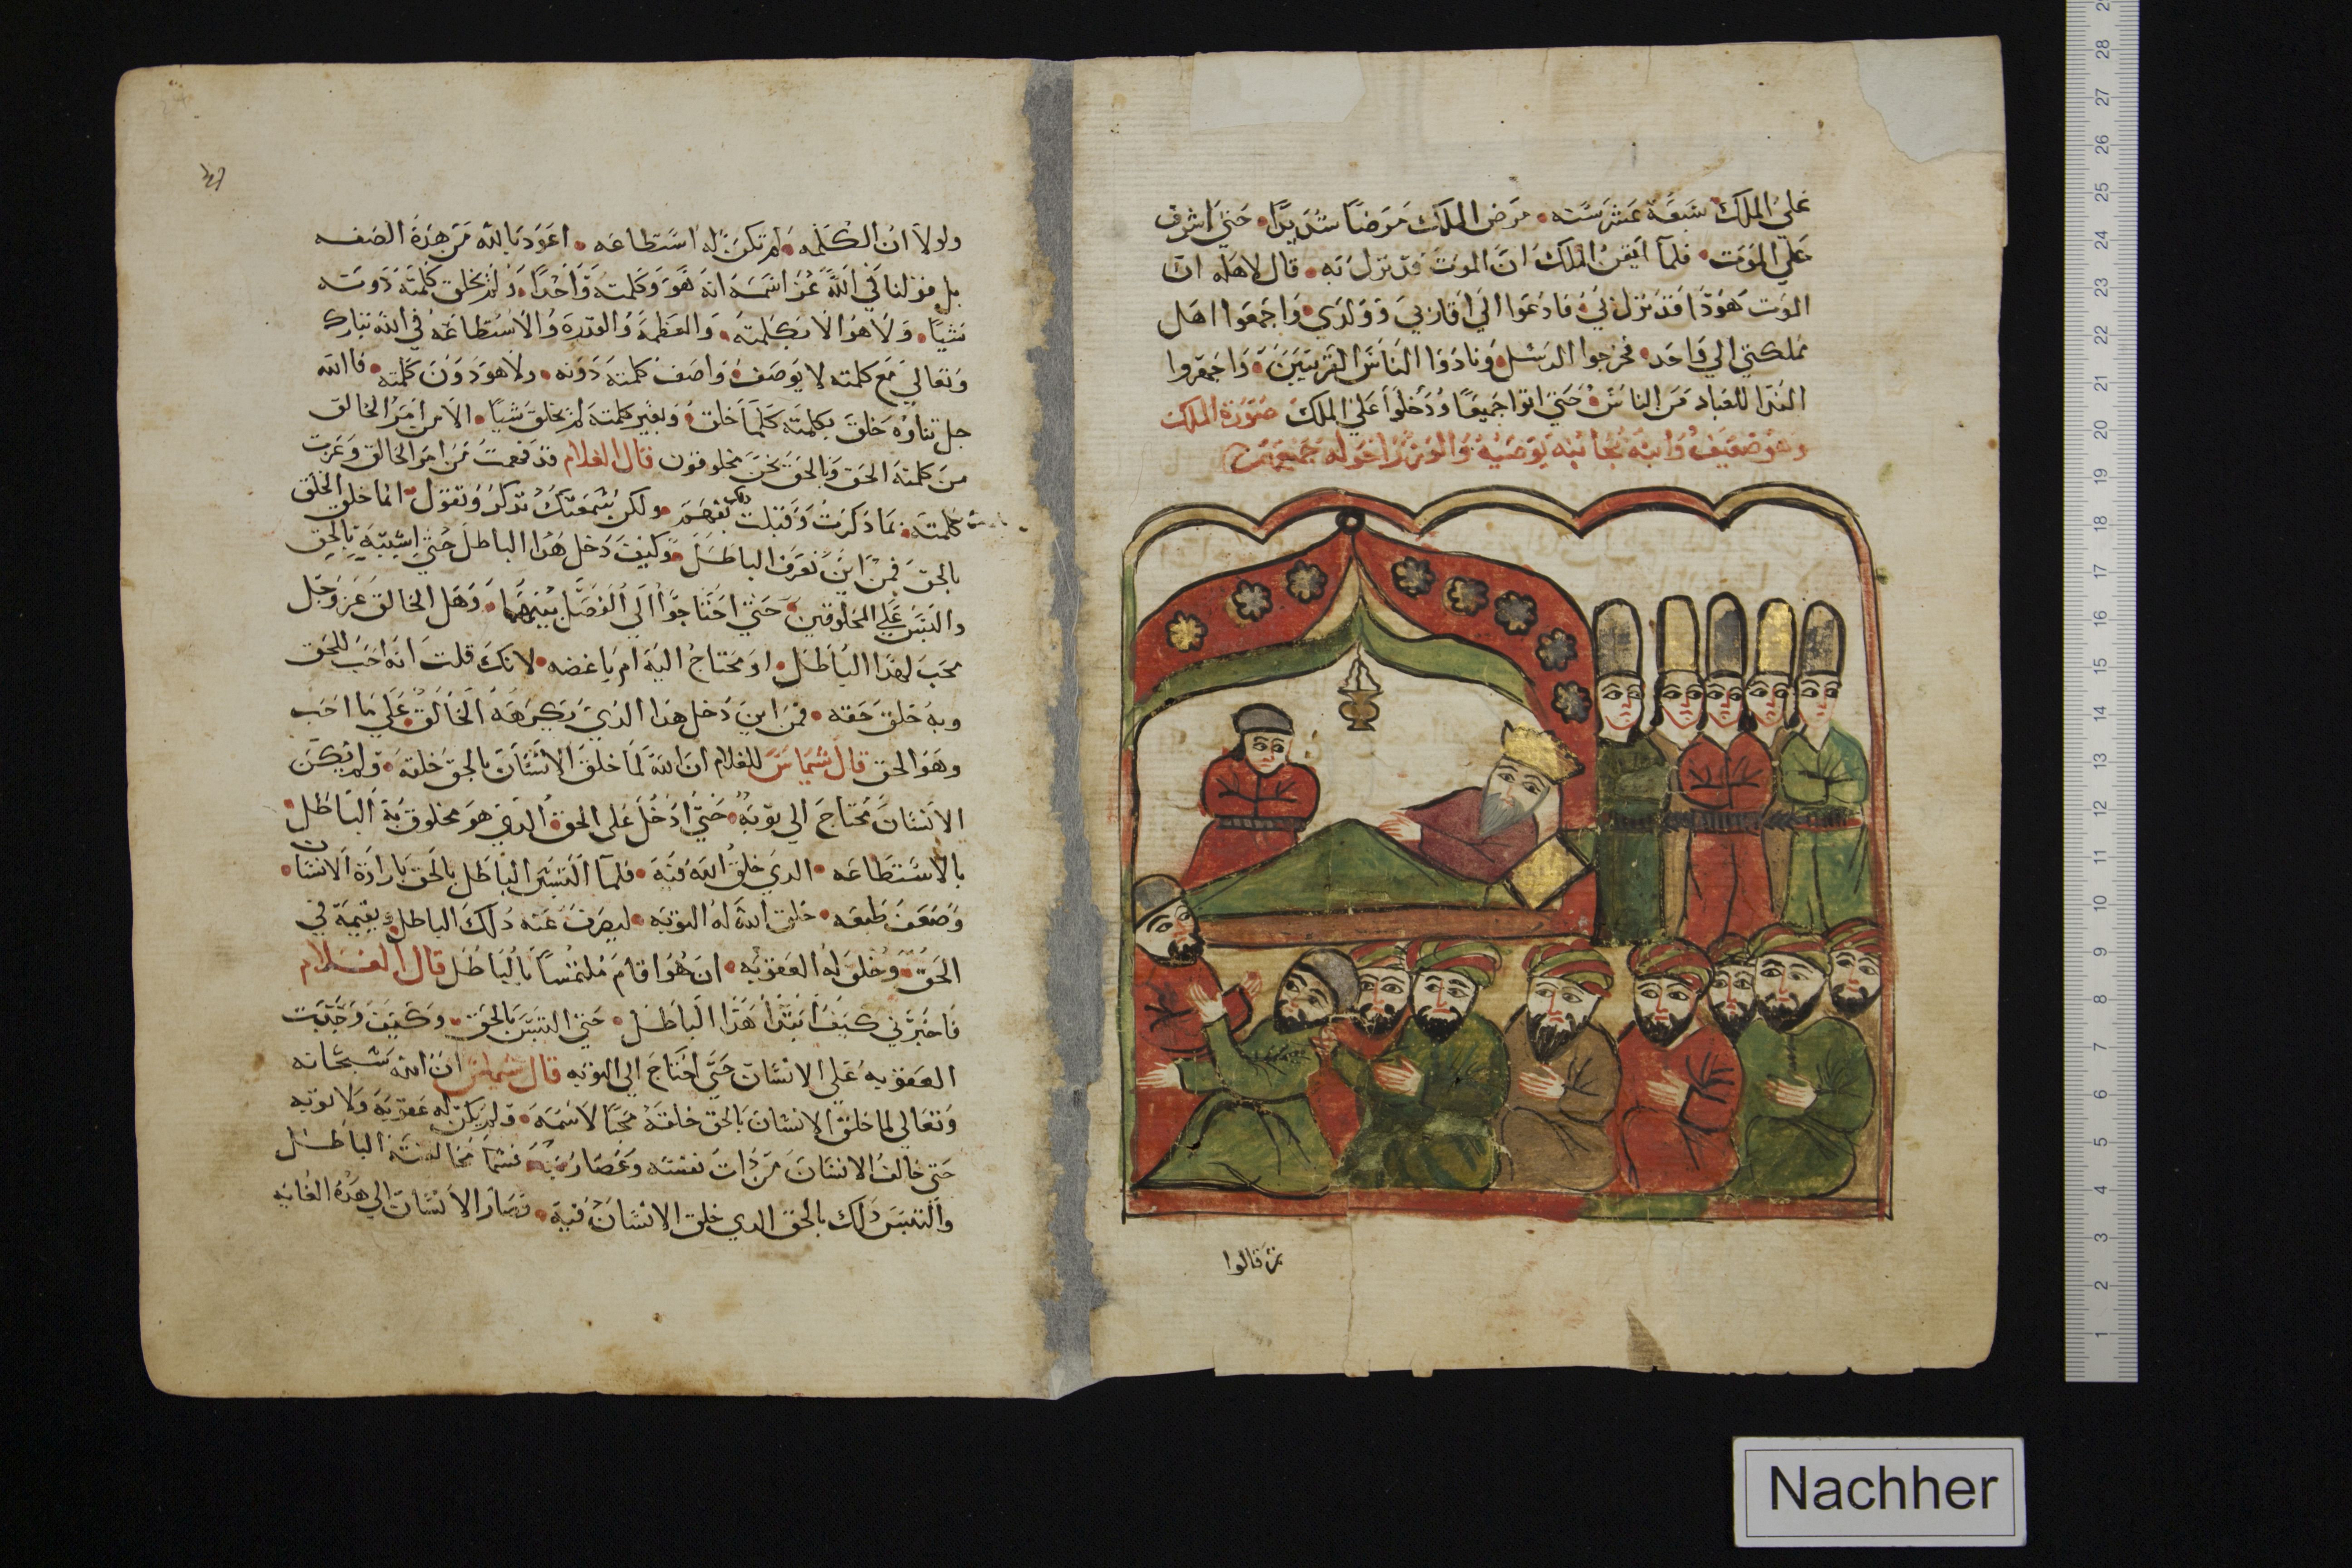 علي الملك سبعة عشر سنه • مرض الملك مرضاً شديدًا • حتي اشرف
علي الموت • فلما ايقن الملك ان الموت قد نزل به • قال لاهله ان
الموت هودا قد نزل بي • فادعوا الي اقاربي وولدي • واجمعوا اهل
مملكتي الي واحد • فخرجوا الرسل ونادوا الناس القريبين • واجمعوا
للعباد من الناس • حتي اتوا جميعًا ودخلوا علي الملك صورة الملك
وهو ضعيف وابنه بجانبه يوصيه والوزرا حوله جميعهم
ثم قالوا
ولولا ان الكلمه • لم تكن له استطاعه • اعود بالله من هده الصفه
بل قولنا في الله عز اسمه انه هو وكلمته واحدًا • ولم يخلق كلمته دونه
شيًا • ولا هو الا بكلمته • والعظمة والقدرة والاستطاعة في الله تبارك
وتعالي مع كلمته لا يوصف واصف كلمته دونه • ولا هو دون كلمته • فالله
جل تناوه خلق بكلمته كلما خلق • وبغير كلمته لم يخلق شيًا • الامر امر الخالق
من كلمته الحق وبالحق نحن مخلوقون قال الغلام قد فهمت من امر الخالق وعرفت
كلمته • بما ذكرت وقبلت دلك بفهم • ولكن سمعتك تدكر وتقول انما خلق الخلق
بالحق فمن اين نعرف الباطل • وكيف دخل هدا الباطل حتي اشتبه بالحق
والتبس علي المخلوقين • حتي احتاجوا الي الفصل بينهما • وهل الخالق عز وجل
محب لهدا الباطل • او محتاج اليه ام باغضه • لانك قلت انه احب للحق
وبه خلق خلقه • فمن اين دخل هدا الدي يكرهه الخالق علي ما احب
وهو الحق قال شماس للغلام ان الله لما خلق الانسان بالحق خلقه • ولم يكن
الانسان محتاج الي توبه • حتي ادخل علي الحق الدي هو مخلوق به الباطل •
بالاستطاعه • الدي خلق الله فيه • فلما التبس الباطل بالحق بارادة الانسان •
وضعف طبعه • خلق الله له التوبه • ليصرف عنه دلك الباطل ويقيمه في
الحق • وخلق له العقوبه • ان هو اقام ملتمسًا بالباطل قال الغلام
فاخبرني كيف ابتدا هدا الباطل • حتي التبس بالحق • وكيف وجبت
العقوبه علي الانسان حتي احتاج الي التوبه قال شماس ان الله سبحانه
وتعالي لما خلق الانسان بالحق خلقه محبًا لاسمه • ولم يكن له عقوبه ولا توبه
حتي خالف الانسان من دات نفسه وعصا ربه فسما مخالفته الباطل
والتبس دلك بالحق الدي خلق الانسان فيه • فصار الانسان الي هده الغايه
29
28
27
26
25
24
23
22
21
20
19
18
17
16
15
14
13
12
11
10
9
8
7
6
5
4
3
2
1
Nachher